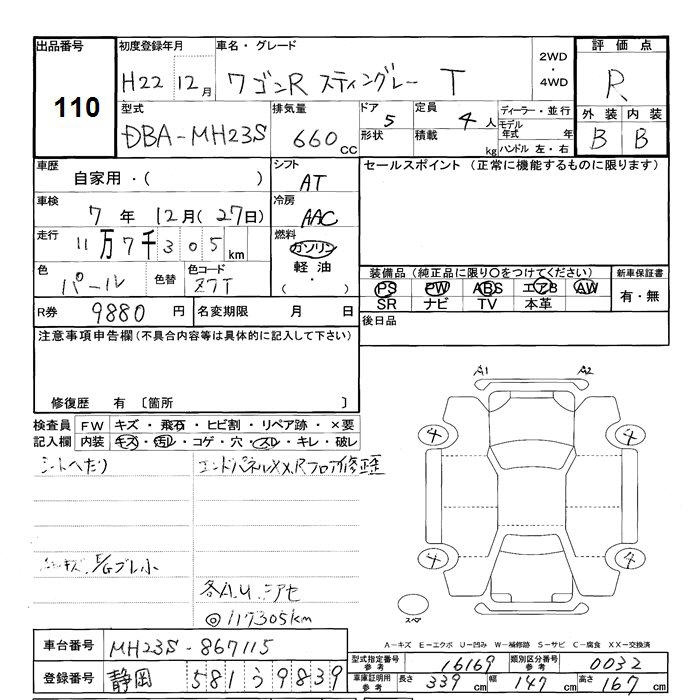 出品番号 初度登録年月 車名・グレード 2WD・4WD 評価点
110 H22 12月 ワゴンR スティングレー T R
型式 排気量 ドア 5 定員 4人 ディーラー・並行 外装 内装
DBA-MH23S 660cc 形状 積載 kg モデル年式 年 ハンドル 左・右 B B
車歴 自家用・( ) シフト AT セールスポイント (正常に機能するものに限ります)
車検 7年 12月(27日) 冷房 AAC
走行 11万7千305km 燃料 ガソリン
軽油
( ・ )
色 パール 色替 色コード Z7T 装備品 (純正品に限り〇をつけてください) 新車保証書
PS PW ABS エアB AW 有・無
SR ナビ TV 本革
R券 9880円 名変期限 月 日 後日品
注意事項申告欄 (不具合内容等は具体的に記入して下さい)
修復歴 有 〔箇所 〕
A1 A2
検査員 FW キズ・飛石・ヒビ割・リペア跡・×要
記入欄 内装 キズ・汚れ・コゲ・穴・スレ・キレ・破レ
4 4
シートヘタリ エンドパネルXX,Rフロア修正歪
4 4
キズ、E/Gブレ小
各A.U.
◎117305km
スペア
A-キズ E-エクボ U-凹み W-補修跡 S-サビ C-腐食 XX-交換済
車台番号 MH23S-867115
型式指定番号 参考 16169 類別区分番号 参考 0032
登録番号 静岡 581 う 9839
車庫証明用 参考 長さ 339cm 幅 147cm 高さ 167cm